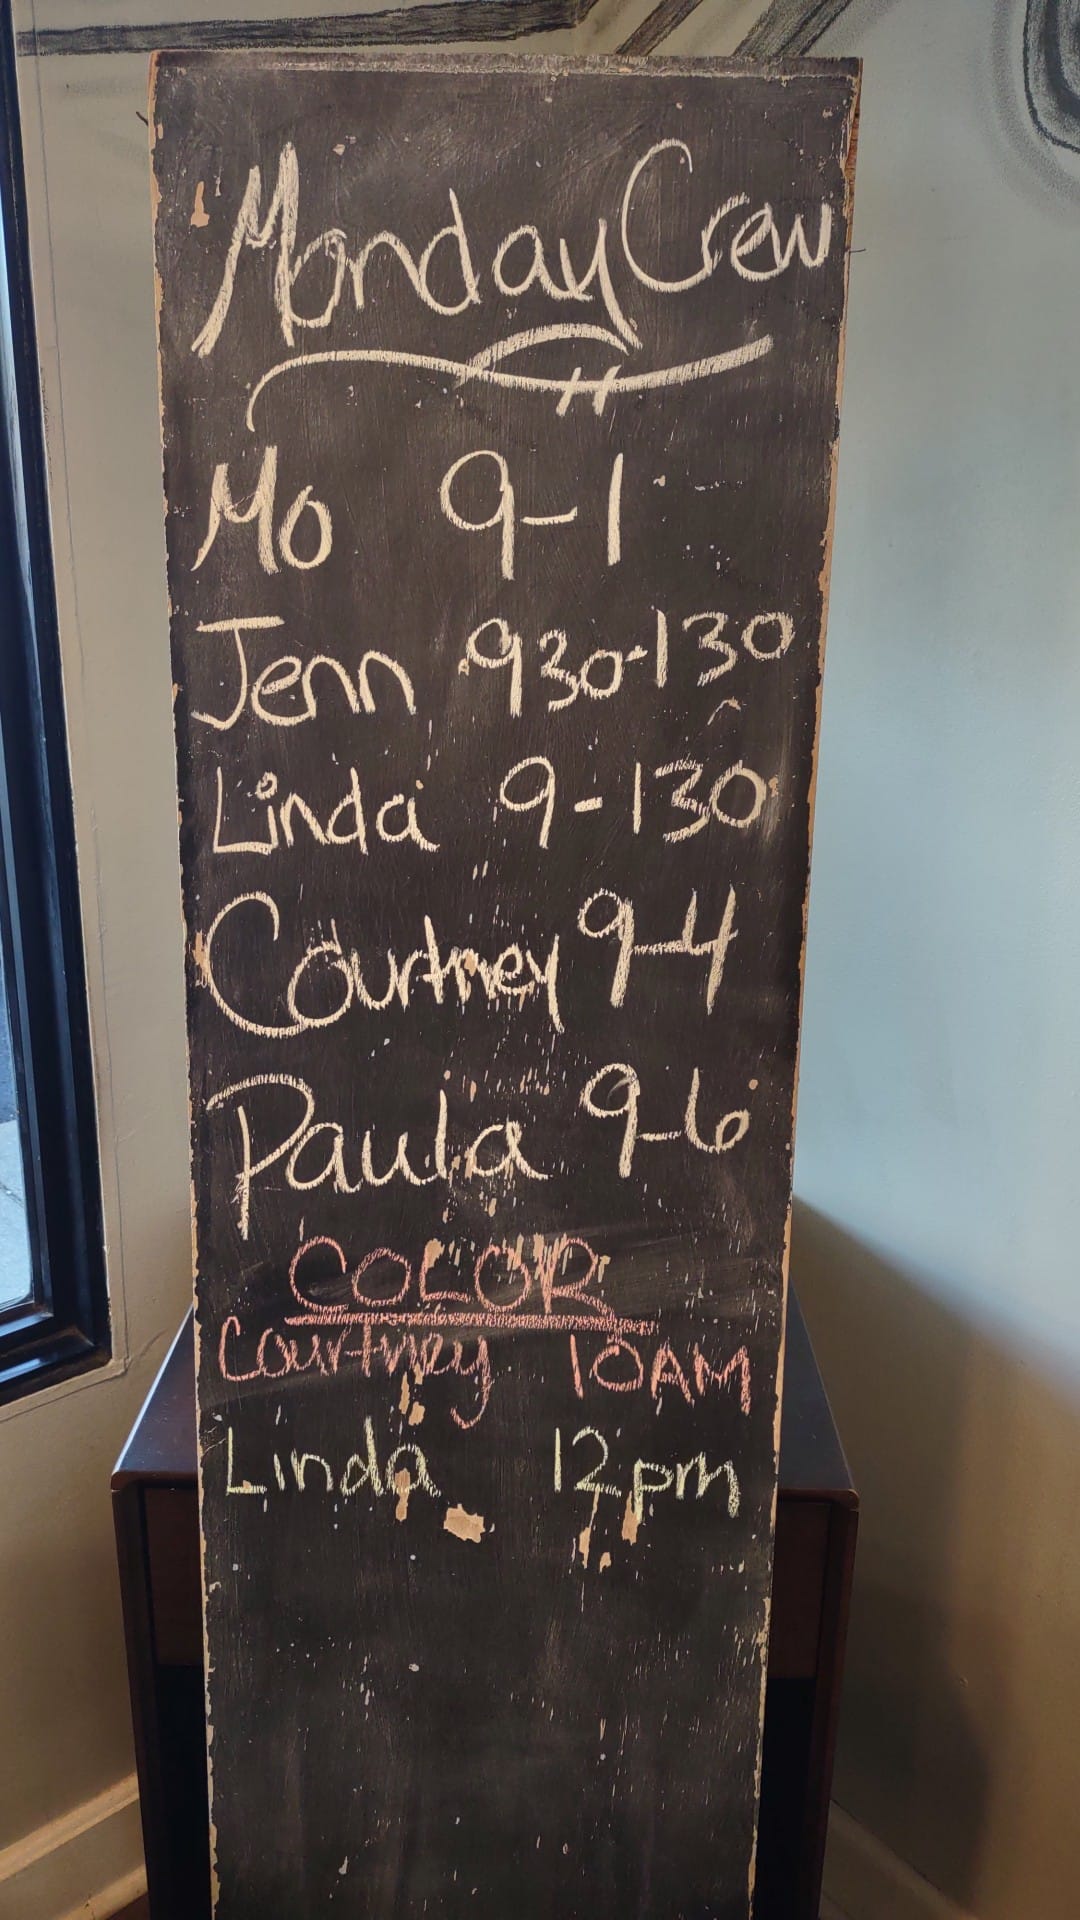 Monday Crew
Mo 9-1
Jenn 930-130
Linda 9-130
Courtney 9-4
Paula 9-6
COLOR
Courtney 10AM
Linda 12pm